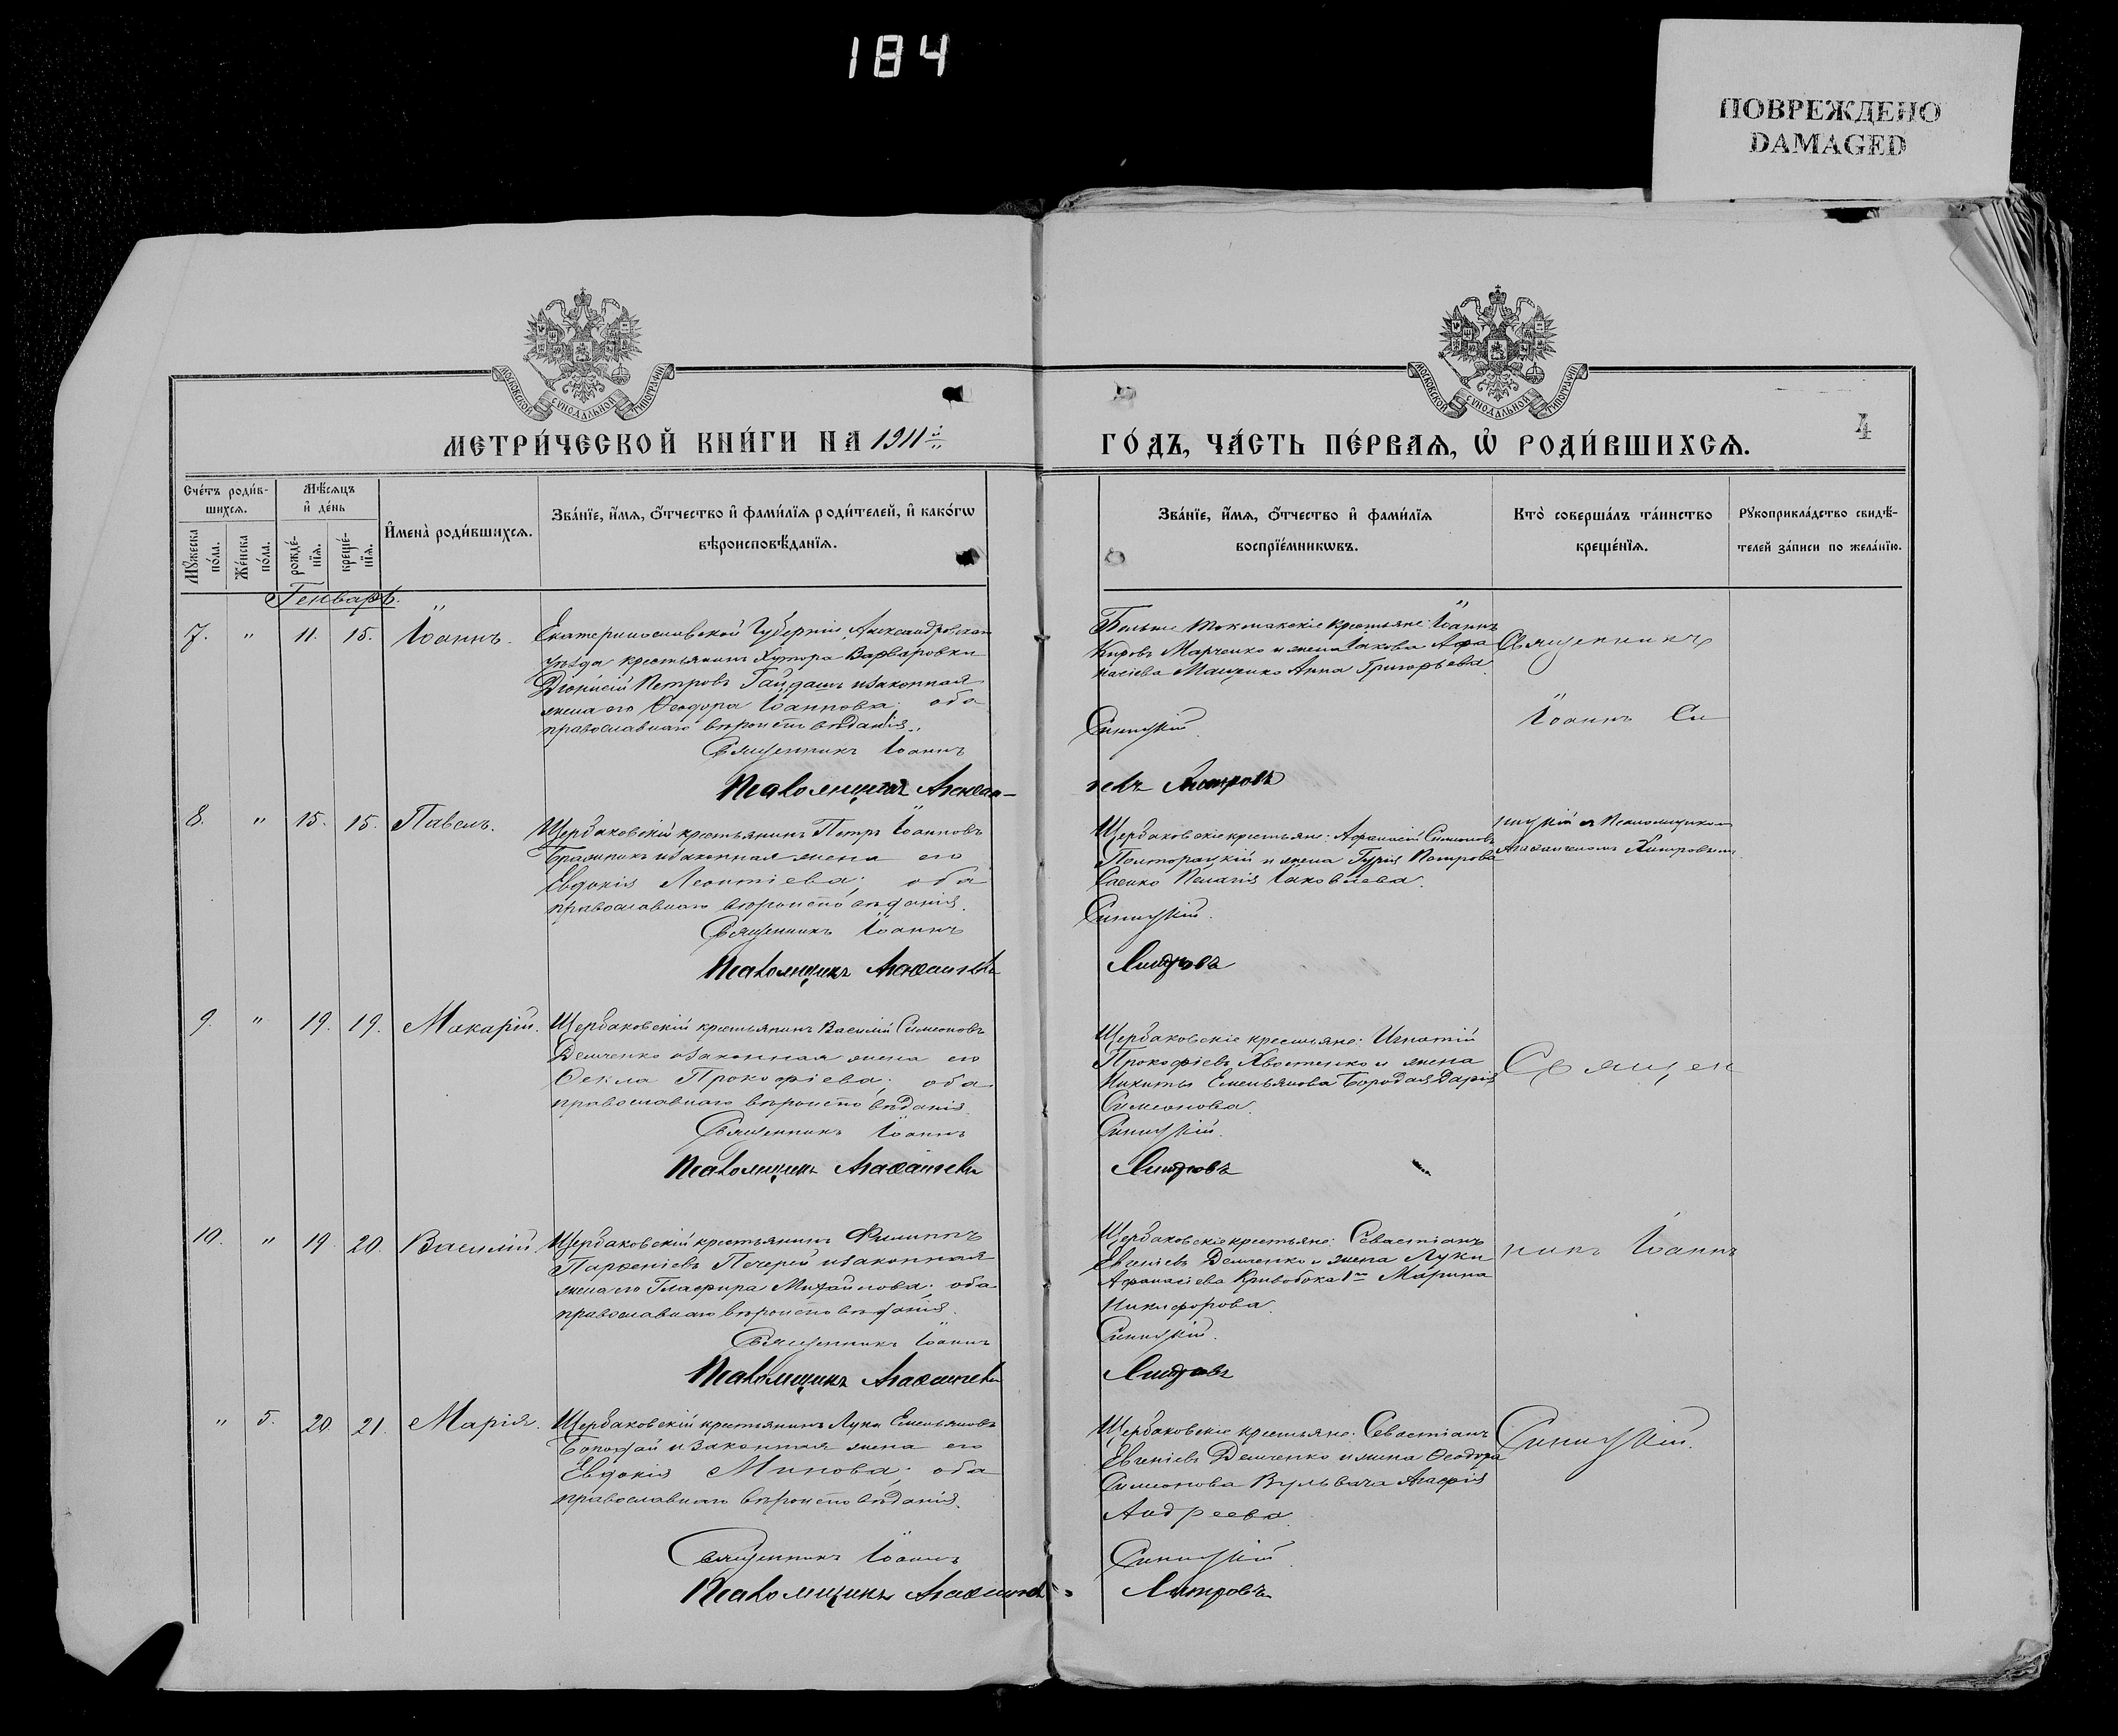 184
ПОВРЕЖДЕНО
DAMAGED
МОСКОВСКОЙ СѴНОДАЛЬНОЙ ТИПОГРАФІИ
МОСКОВСКОЙ СѴНОДАЛЬНОЙ ТИПОГРАФІИ
4
МЕТРИ́ЧЕСКОЙ КНИ́ГИ НА 1911й
ГО́ДЪ, ЧА́СТЬ ПЕ́РВАѦ, Ѡ РОДИ́ВШИХСѦ.
Сче́тъ роди́в-
шихсѧ.
Мꙋ́жеска по́ла.
Же́нска по́ла.
Мѣ́сѧцъ
и҆ де́нь
рожде́-нїѧ.
креще́-нїѧ.
И҆мена̀ роди́вшихсѧ.
Зва́нїе, и҆́мѧ, ѻ҆́тчество и҆ фами́лїѧ роди́телей, и҆ како́гѡ
вѣроисповѣ́данїѧ.
Зва́нїе, и҆́мѧ, ѻ҆́тчество и҆ фами́лїѧ
воспрїе́мникѡвъ.
Кто̀ соверша́лъ та́инство
креще́нїѧ.
Рꙋкоприкла́дство свидѣ́-
телей за́писи по жела́нїю.
Генварь.
7. " 11. 15. Іоаннъ.
Екатеринославской Губерніи Александровскаго
уѣзда крестьянинъ Хутора Варваровки
Діонисій Петровъ Гайдашъ и законная
жена его Ѳеодора Іоаннова; оба
православнаго вѣроисповѣданія.
Священникъ Іоаннъ
Псаломщикъ Агаѳан-
Больше Токмакскіе крестьяне: Іоаннъ
Кировъ Марченко и жена Іакова Афа
насіева Мащенко Анна Григорьева.
Синицкій.
гелъ Хитровъ
Священникъ
Іоаннъ Си
8. " 15. 15. Павелъ.
Щербаковскій крестьянинъ Петръ Іоанновъ
Бражникъ и законная жена его
Евдокія Леонтіева; оба
православнаго вѣроисповѣданія.
Священникъ Іоаннъ
Псаломщикъ Агаѳангелъ
Щербаковскіе крестьяне: Афанасій Симеоновъ
Полторацкій и жена Гурія Петрова
Саенко Пелагія Іаковлева.
Синицкій.
Хитровъ
ницкій съ Псаломщикомъ
Агаѳангеломъ Хитровымъ.
9. " 19. 19. Макарій.
Щербаковскій крестьянинъ Василій Симеоновъ
Демченко и законная жена его
Ѳекла Прокофіева; оба
православнаго вѣроисповѣданія.
Священникъ Іоаннъ
Псаломщикъ Агаѳангелъ
Щербаковскіе крестьяне: Игнатій
Прокофіевъ Хвостенко и жена
Никиты Емельянова Бородая Дарія
Симеонова.
Синицкій.
Хитровъ
Священ
10. " 19. 20. Василій.
Щербаковскій крестьянинъ Филиппъ
Парѳеніевъ Печерей и законная
жена его Глафира Михайлова; оба
православнаго вѣроисповѣданія.
Священникъ Іоаннъ
Псаломщикъ Агаѳангелъ
Щербаковскіе крестьяне: Севастіанъ
Евгеніевъ Демченко и жена Луки
Афанасіева Кривобока 1го Марина
Никифорова.
Синицкій.
Хитровъ
никъ Іоаннъ
" 5. 20. 21. Марія.
Щербаковскій крестьянинъ Лука Емельяновъ
и законная жена его
Евдокія Минова; оба
православнаго вѣроисповѣданія.
Священникъ Іоаннъ
Псаломщикъ Агаѳангелъ
Щербаковскіе крестьяне: Севастіанъ
Евгеніевъ Демченко и жена Ѳеодора
Симеонова Вульвача Агафія
Андреева.
Синицкій.
Хитровъ
Синицкій.